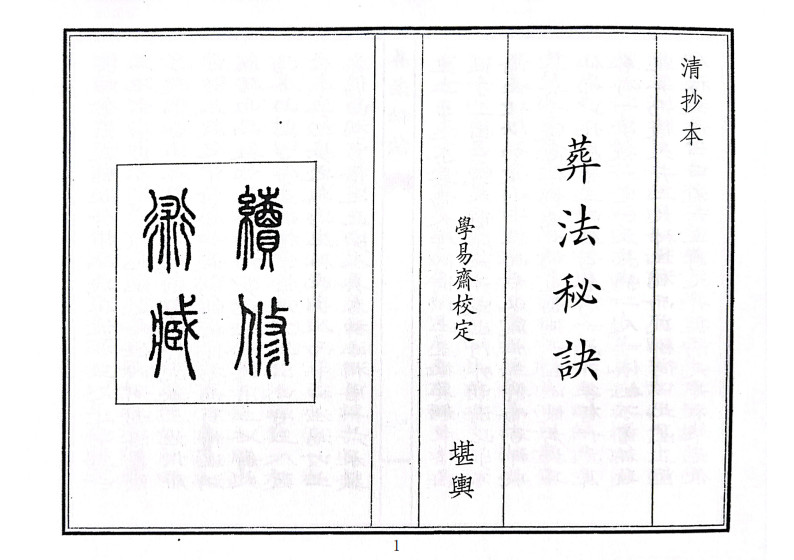 清抄本
葬法秘訣
學易齋校定
堪輿
續修
術藏
1